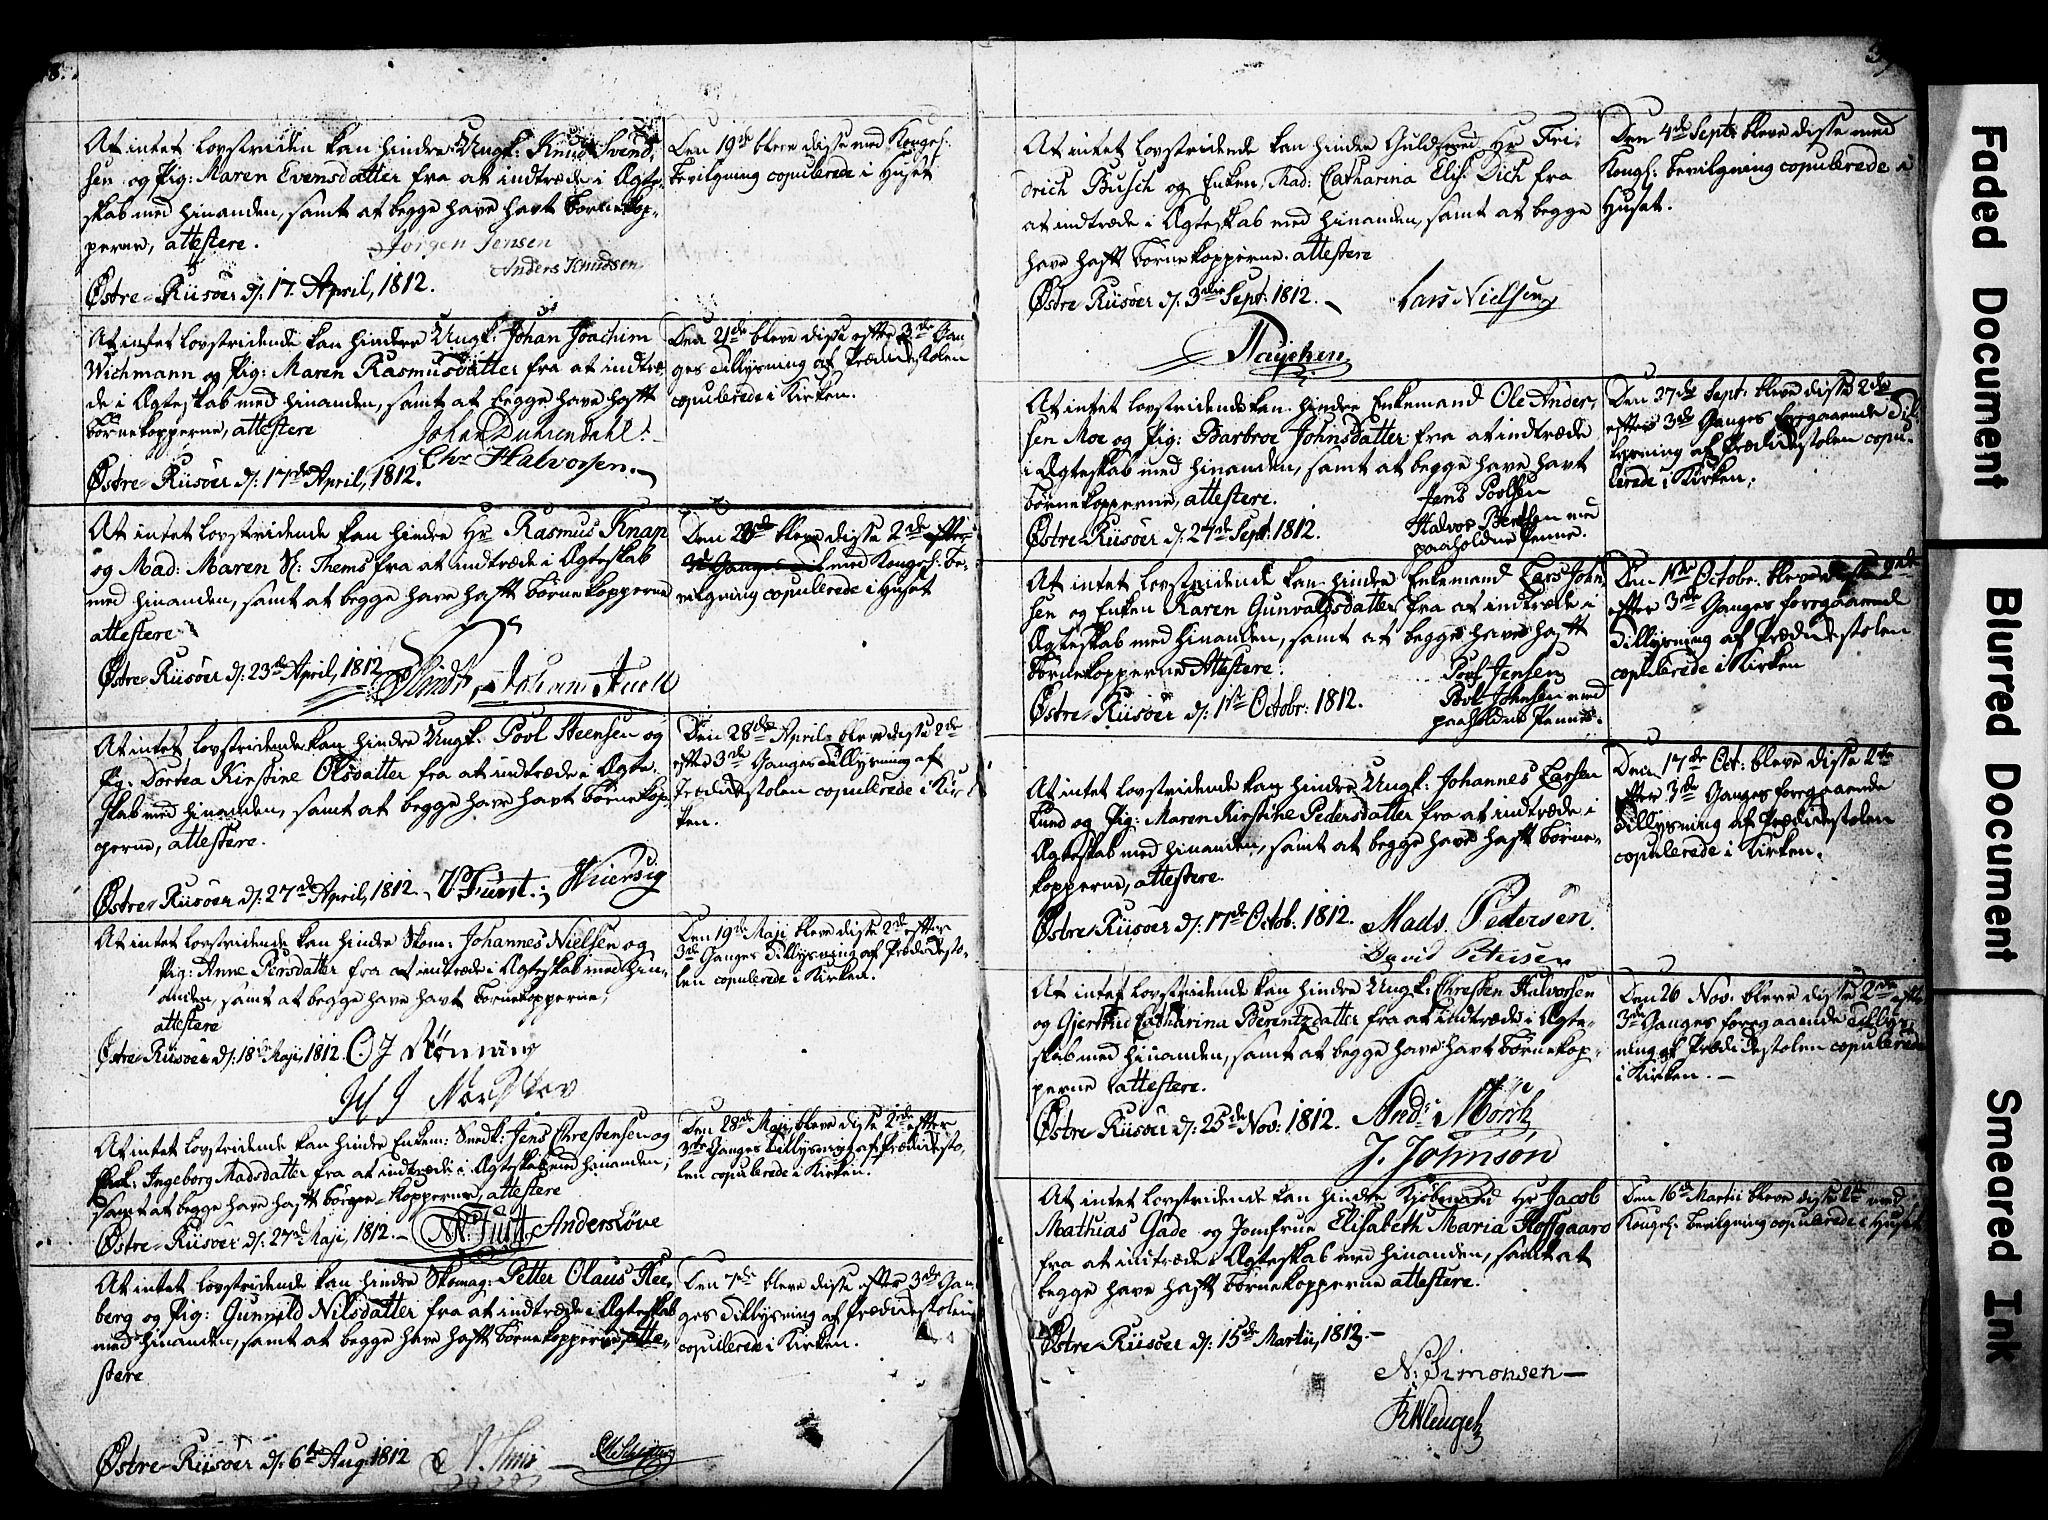 At intet lovstriden kan hindre Ungk: Knud Svend,
sen og Pig: Maren Evensdatter fra at indtræde i Ægte-
skab med hinanden, samt at begge have havt Børnekop-
perne, attestere.
Jørgen Jensen
Anders Knudsen
Østre-Riisöer d: 17 April, 1812.
Den 19de bleve disse med Kongel:
Bevilgning copulerede i Huset
At intet lovstridende kan hindre Ungk: Johan Joachim
Wichmann og Pig: Maren Rasmusdatter fra at indtræ-
de i Ægteskab med hinanden, samt at begge have haft
Børnekopperne, attestere
Johan Duhrendahl.
Chr Halvorsen.
Østre-Riisöer d: 17de April, 1812.
Den 21de bleve disse efter 3de Gan-
ges Tillysning af Prædikestolen
copulerede i Kirken.
At intet lovstridende kan hindre Hr Rasmus Knap
og Mad: Maren Thems fra at indtræde i Ægteskab
med hinanden, samt at begge have haft Børnekopperne
attestere
Østre-Riisöer d: 23de April, 1812
Den 28de bleve disse 2de efter
med Kongel: Be-
vilgning copulerede i Huset
At intet lovstridende kan hindre Ungk: Povl Steensen og
Pig: Dortea Kirstine Olsdatter fra at indtræde i Ægte-
skab med hinanden, samt at begge have havt Børnekop-
perne, attestere.
Østre-Riisöer d: 27de April, 1812. Fürst.
Den 28de April bleve disse 2de
efter 3de Ganges Tillysning af
Prædikestolen copulerede i Kir-
ken.
At intet lovstridende kan hindre Skom: Johannes Nielsen og
Pig: Anne Persdatter fra at indtræde i Ægteskab med hin-
anden, samt at begge have havt Børnekopperne,
attestere
Østre-Riisöer d: 18de Maji, 1812. O J Rönning
Den 19de Maji bleve disse 2de efter
3de Ganges Tillysning af Prædikesto-
len copulerede i Kirken.
At intet lovstridende kan hindre Enkem: Smedk: Jens Christensen og
Ingeborg Madsdatter fra at indtræde i Ægteskab med hinanden,
samt at begge have haft Børne-kopperne, attestere
Østre-Riisöer d: 27de Maji, 1812. Anders Löve
Den 28de Maji bleve disse 2de efter
3de Ganges Tillysning af Prædikesto-
len copulerede i Kirken.
At intet lovstridende kan hindre Skomag: Petter Olaus Hee-
berg og Pig: Gunnild Nilsdatter fra at indtræde i Ægteskab
med hinanden, samt at begge have haft Børnekopperne, atte-
stere
Østre-Riisöer d: 6te Aug 1812
Den 7de bleve disse efter 3de Gan-
ges Tillysning af Prædikestolen
copulerede i Kirken.
At intet lovstridende kan hindre Guldsmed Hr Fri-
drich Busch og Enken, Mad: Catharina Elis: Dich fra
at indtræde i Ægteskab med hinanden, samt at begge
have haft Børnekopperne. attestere
Østre Riisöer d: 3die Sept: 1812. Lars Nielsen
Den 4de Sept: bleve disse med
Kongl: Bevilgning copulerede i
Huset.
At intet lovstridende kan hindre Enkemand Ole Ander,
sen Moe og Pig: Barbroe Johnsdatter fra at indtræde
i Ægteskab med hinanden, samt at begge have havt
Børnekopperne, attestere.
Jens Povlsen
Østre-Riisöer d: 27de Sept: 1812.
Halvor Bertsen med
paaholdne Penne.
Den 27de Sept: bleve disse 2de
efter 3de Ganges foregaaende Til-
lysning af Prædikestolen copu-
lerede i Kirken.
At intet lovstridende kan hindre Enkemand Lars John,
sen og Enken Karen Gunvaldsdatter fra at indtræde i
Ægteskab med hinanden, samt at begge have haft
Børnekopperne Attestere.
Povl Jensen
Østre-Riisöer d: 1ste Octobr: 1812.
Povl Johnsen med
paaholdne Penne.
Den 1ste Octobr. bleve disse 2de
efter 3de Ganges foregaaende
Tillysning af Prædikestolen
copulerede i Kirken
At intet lovstridende kan hindre Ungk: Johannes Larsen
Lund og Pig: Maren Kirstine Pedersdatter fra at indtræde i
Ægteskab med hinanden, samt at begge have haft Børne-
kopperne, attestere.
Østre-Riisöer d: 17de Octob: 1812. Mads Pedersen.
David Petersen
Den 17de Oct: bleve disse 2de
efter 3de Ganges foregaaende
Tillysning af Prædikestolen
copulerede i Kirken.
At intet lovstridende kan hindre Ungk: Christen Halvorsen
og Gjertrud Catharina Berentzdatter fra at indtræde i Ægte-
skab med hinanden, samt at begge have havt Børnekop-
perne attestere.
Østre-Riisöer d: 25de Nov: 1812. And: Mörch
J. Johnson
Den 26 Nov: bleve disse 2de efter
3de Ganges foregaaende Tillys-
ning af Prædikestolen copulerede
i Kirken.
At intet lovstridende kan hindre Kjöbmand Hr Jacob
Mathias Gade og Jomfrue Elisabeth Maria Hoffgaard
fra at indtræde i Ægteskab med hinanden, samt at
begge have haft Børnekopperne attestere.
Østre-Riisöer d: 15de Martii, 1813.
N: Simonsen
Den 16de Martii bleve disse 2de med
Kongel: Bevilgning copulerede i Huset
Faded Document
Blurred Document
Smeared Ink